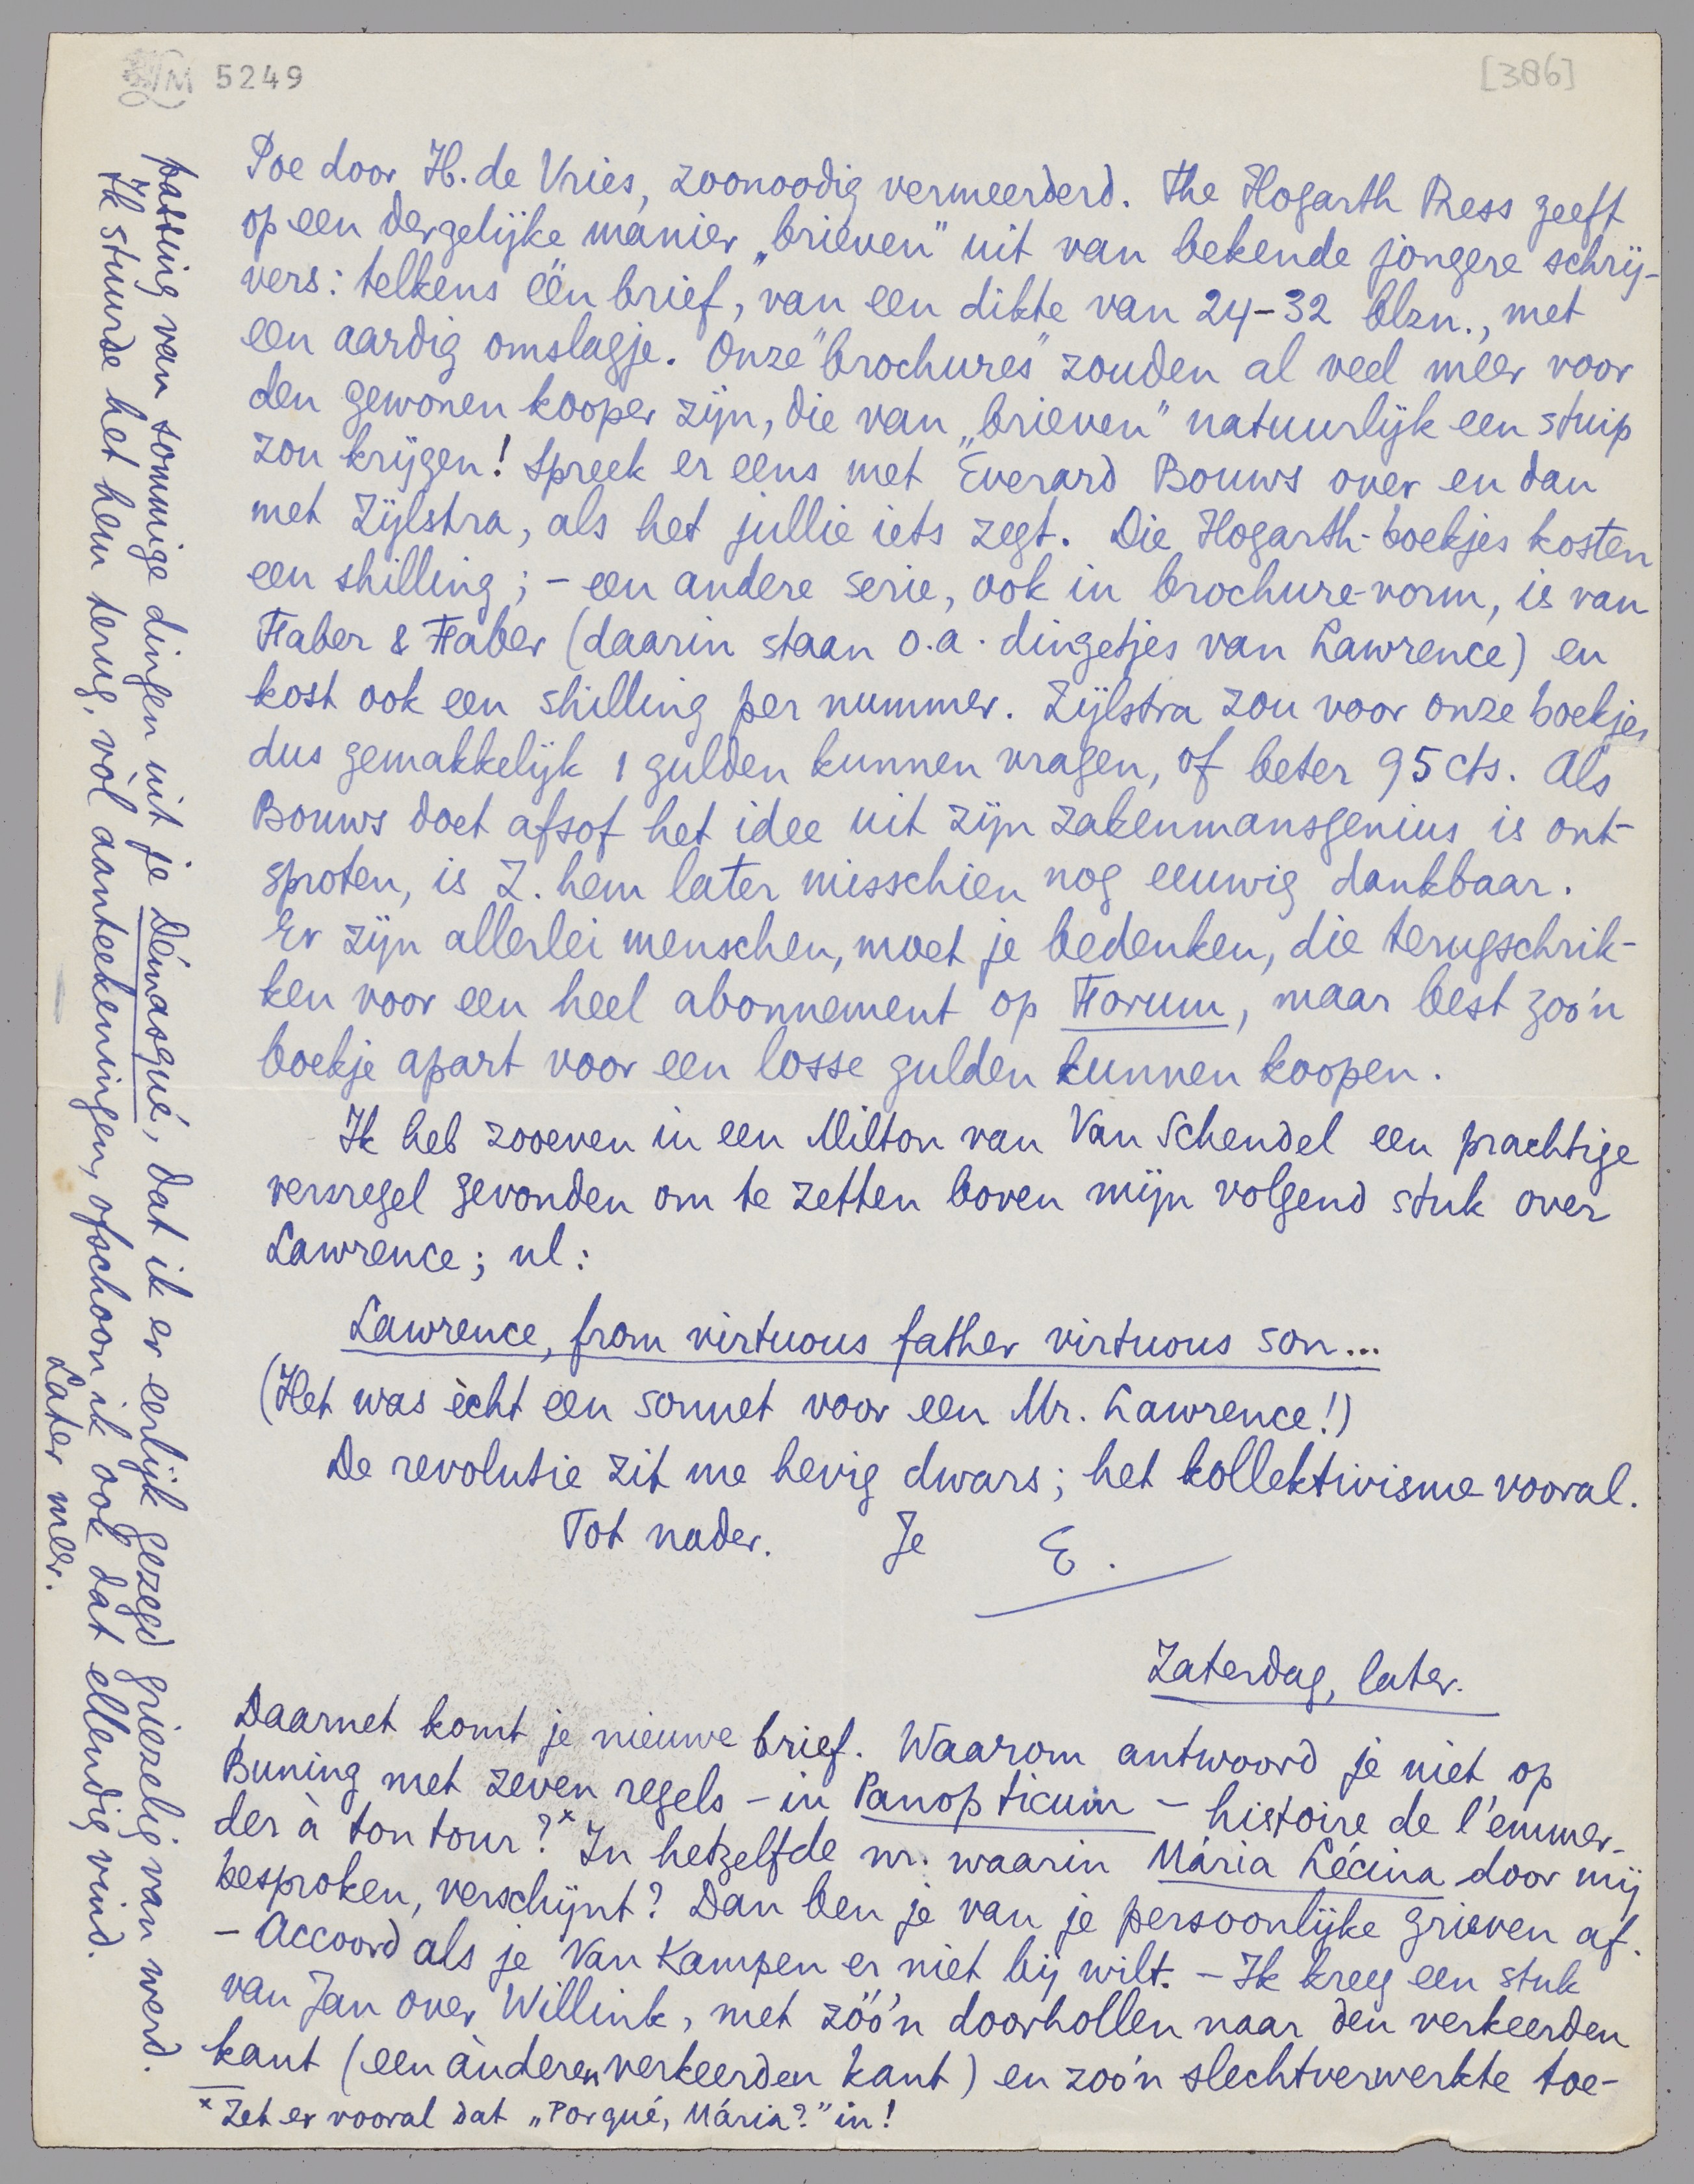 LM 5249
[386]
Poe door H. de Vries, zoonoodig vermeerderd. The Hogarth Press geeft
op een dergelijke manier „brieven” uit van bekende jongere schrij-
vers: telkens één brief, van een dikte van 24-32 blzn., met
een aardig omslagje. Onze "brochures" zouden al veel méér voor
den gewonen kooper zijn, die van „brieven” natuurlijk een stuip
zou krijgen! Spreek er eens met Everard Bouws over en dan
met Zijlstra, als het jullie iets zegt. Die Hogarth-boekjes kosten
een shilling; - een andere serie, ook in brochure-vorm, is van
Faber & Faber (daarin staan o.a. dingetjes van Lawrence) en
kost ook een shilling per nummer. Zijlstra zou voor onze boekjes
dus gemakkelijk 1 gulden kunnen vragen, of beter 95 cts. Als
Bouws doet afsof het idee uit zijn zakenmansgenius is ont-
sproten, is Z. hem later misschien nog eeuwig dankbaar.
Er zijn allerlei menschen, moet je bedenken, die terugschrik-
ken voor een heel abonnement op Forum, maar best zoo'n
boekje apart voor een losse gulden kunnen koopen.
Ik heb zooeven in een Milton van Van Schendel een prachtige
versregel gevonden om te zetten boven mijn volgend stuk over
Lawrence; nl:
Lawrence, from virtuous father virtuous son...
(Het was ècht een sonnet voor een Mr. Lawrence!)
De revolutie zit me hevig dwars; het kollektivisme vooral.
Tot nader. Je E.
Zaterdag, later.
Daarnet komt je nieuwe brief. Waarom antwoord je niet op
Buning met zeven regels - in Panopticum - histoire de l'emmer-
der à ton tour?* In hetzelfde nr. waarin Mária Lécina door mij
besproken, verschijnt? Dan ben je van je persoonlijke grieven af.
- Accoord als je Van Kampen er niet bij wilt. - Ik kreeg een stuk
van Jan over Willink, met zóó'n doorhollen naar den verkeerden
kant (een ànderen verkeerden kant) en zoo'n slechtverwerkte toe-
* Zet er vooral dat „Porqué, Mária?” in!
passing van sommige dingen uit je Démasqué, dat ik er eerlijk gezegd griezelig van werd.
Ik stuurde het hem terug, vòl aanteekeningen, ofschoon ik ook dat ellendig vind.
Later meer.